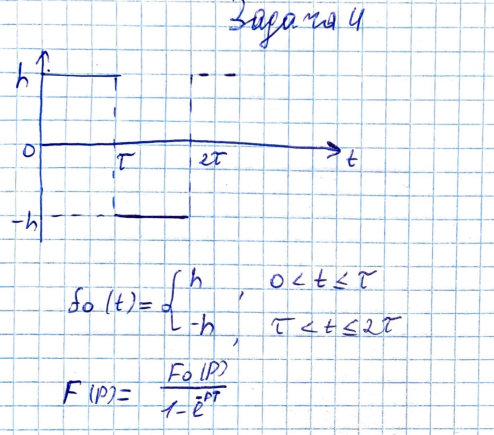 Задача 4
h
0 τ 2τ t
-h
fo (t) = { h , 0 < t ≤ τ
-h , τ < t ≤ 2τ
F(p) = Fo(p) / 1 - e^-pT